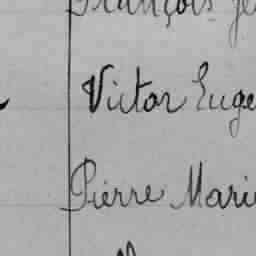 François Je
Victor Euge
Pierre Mari